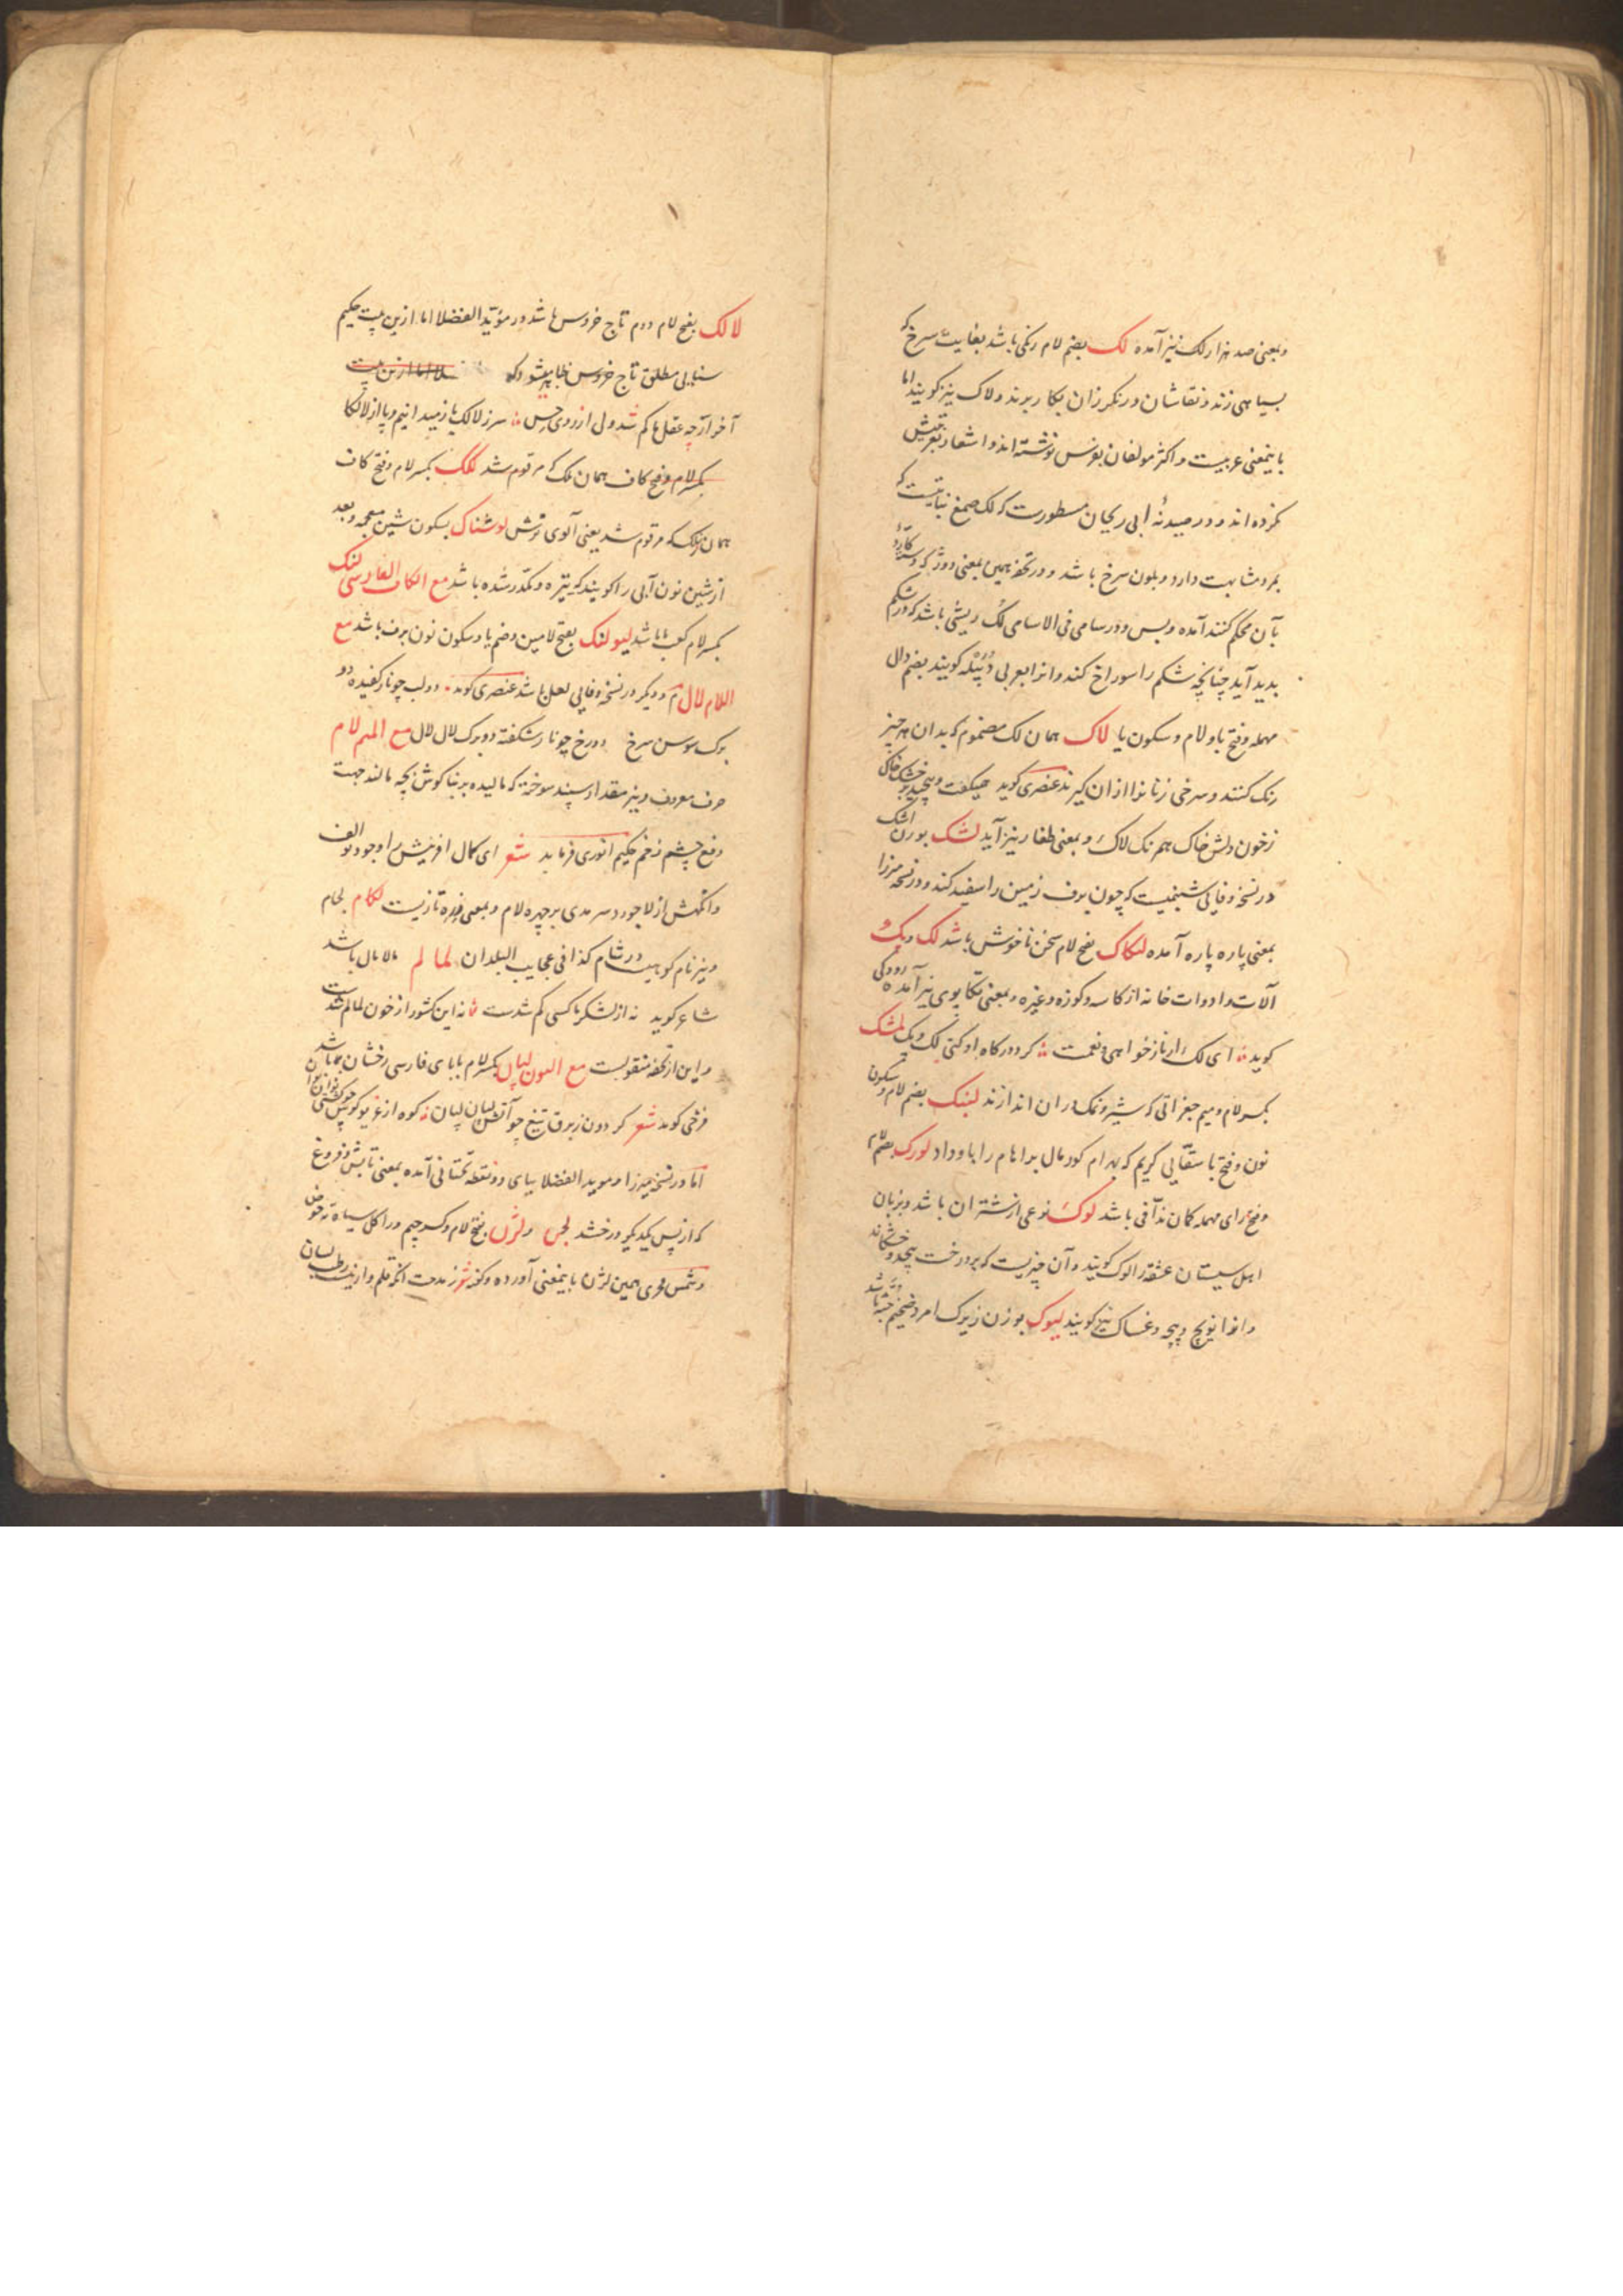 وبمعنی صد هزار لک نیز آمده لک بضم لام رنکی باشد بغایت سرخ که
بسیاهی زند و نقاشان و رنکرزان بکار برند و لاک نیز کویند اما
باینمعنی عربیست و اکثر مولفان نوشته اند و اشعار
نکرده اند و در صیدنهٔ ابی ریحان مسطورست که لک صمغ نباتیست که
بمرد مشابهت دارد و بلون سرخ باشد و در تحفه بمعنی که کارد
بآن محکم کنند آمده و بس و در سامی فی الاسامی لک ریشی باشد که در شکم
بدید آید چنانچه شکم را سوراخ کند و انرا بعربی دُبَیْله کویند بضم دال
مهمله و فتح با و لام و سکون یا لاک همان لک مضموم که بدان هر چیز
رنک کنند و سرخی زنانرا ازان کیرند عنصری کوید خاکی
زخون دلش خاک همرنک لاک و بمعنی نیز آید لشک بوزن اشک
در نسخهٔ وفایی شبنمیست که چون برف زمین را سفید کند و در نسخه میرزا
بمعنی پاره پاره آمده لنکاک بفتح لام سخن ناخوش باشد لک و پک
آلات و ادوات خانه از کاسه و کوزه و غیره و بمعنی تکاپوی نیز آمده رودکی
کوید ای لک ار ناز خواهی و نعمت کرد درکاه او کنی لک و پک لمشک
بکسر لام و میم جغراتی که شیر و نمک دران اندازند لنبک بضم لام و سکون
نون و فتح با سقّایی کریم که بهرام کور مال براهام را باو داد لورک بضم لام
و فتح رای مهمله کمان ندّافی باشد لوک نوعی از شتران باشد و بزبان
اهل سیستان عشقه را لوک کویند و آن چیزیست که بر درخت پیچد و خشکاند
و انرا نویچ و پیچه و غساک نیز کویند لیوک بوزن زیرک امرد ضخیم باشد
لالک بفتح لام دوم تاج خروس باشد در مؤید الفضلا اما ازین بیت حکیم
سنایی مطلق تاج خروس ظاهر میشود که
آخر ارچه عقل ها کم شد ولی از روی حس سر ز لالک باز میدانیم و پا از لالکا
بکسر لام و فتح کاف همان که مرقوم شد للک بکسر لام و فتح کاف
همان که مرقوم شد یعنی آلوی ترش لوشناک بسکون شین معجمه و بعد
از شین نون آبی را کویند که تیره و مکدّر شده باشد مع الکاف الفارسی لنک
بکسر لام باشد لیولنک بفتح لامین و ضم یا و سکون نون برف باشد مع
اللام لال م و دیکر در نسخهٔ وفایی لعل باشد عنصری کوید دو لب چو نار کفیده دو
برک سوسن سرخ دو رخ چو نار شکفته دو برک لال لال مع المیم لام
حرف معروف و نیز مقدار سپند سوخته که مالیده بر بناکوش بچه مالند جهت
دفع چشم زخم حکیم انوری فرماید شعر ای کمال افرینش را وجود تو الف
وانکهش از لاجورد سرمدی بر چهره لام و بمعنی تازیست لکام لجام
و نیز نام کوهیست در شام کذا فی عجایب البلدان لما لم مالامال باشد
شاعر کوید نه از لشکر ما کسی کم شدست نه این کشور از خون لمالم شدست
و این از تحفه منقولست مع النون لپان بکسر لام بابای فارسی رخشان باشد
فرخی کوید شعر کردون ز برق تیغ چو آتش لپان لپان کوه از غریو کوس
اما در نسخه میرزا و موید الفضلا بیای دو نقطه تحتانی آمده بمعنی تابش و فروغ
که از پس یکدیکر درخشد لجن و لژن بفتح لام و کسر جیم و را کل سیاه ته حوض
و شمس فخری همین لژن باینمعنی آورده و کفته شعر ز مدحت انکه قلم وار نیست رطب لسان